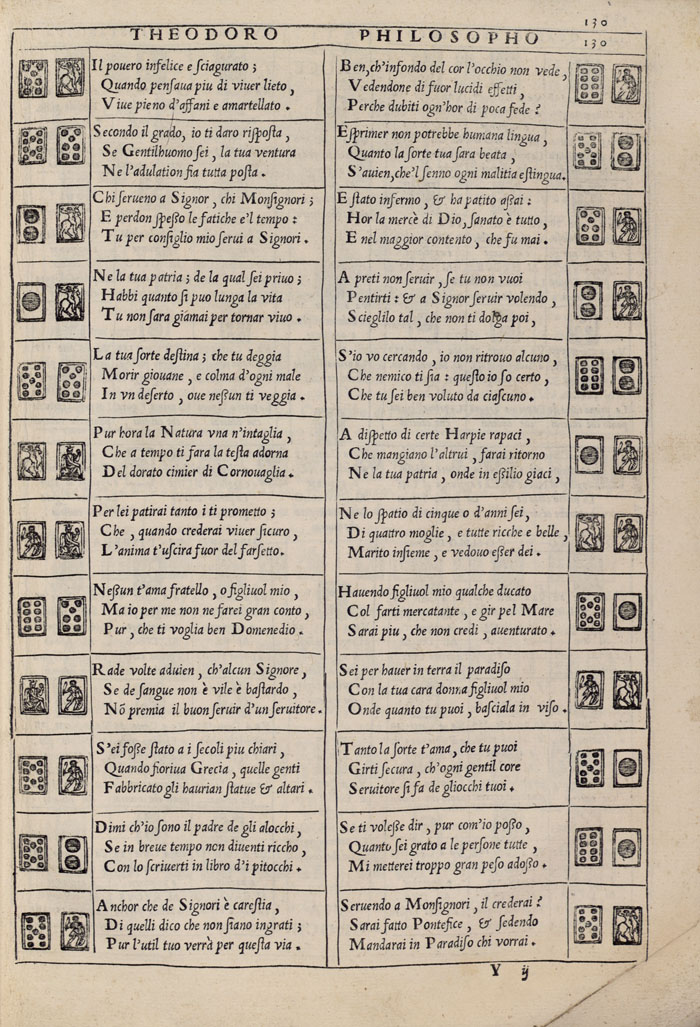 130
THEODORO PHILOSOPHO
130
Il pouero infelice e ſciagurato ;
Quando penſaua piu di viuer lieto ,
Viue pieno d'affani e amartellato .
Secondo il grado, io ti daro riſpoſta ,
Se Gentilhuomo ſei , la tua ventura
Ne l'adulation ſia tutta poſta .
Chi ſerueno a Signor , chi Monſignori ;
E perdon ſpeßo le fatiche e'l tempo :
Tu per conſiglio mio ſerui a Signori .
Ne la tua patria ; de la qual ſei priuo ;
Habbi quanto ſi puo lunga la vita
Tu non ſara giamai per tornar viuo .
La tua ſorte deſtina ; che tu deggia
Morir giouane , e colma d'ogni male
In vn deſerto , oue neßun ti veggia .
Pur hora la Natura vna n'intaglia ,
Che a tempo ti fara la teſta adorna
Del dorato cimier di Cornouaglia .
Per lei patirai tanto i ti prometto ;
Che , quando crederai viuer ſicuro ,
L'anima t'uſcira fuor del farſetto .
Neßun t'ama fratello , o figliuol mio ,
Ma io per me non ne farei gran conto ,
Pur , che ti voglia ben Domenedio .
Rade volte aduien , ch'alcun Signore ,
Se de ſangue non è vile è baſtardo ,
Nõ premia il buon ſeruir d'un ſeruitore .
S'ei foße ſtato a i ſecoli piu chiari ,
Quando fioriua Grecia , quelle genti
Fabbricato gli haurian ſtatue & altari .
Dimi ch'io ſono il padre de gli alocchi ,
Se in breue tempo non diuenti riccho ,
Con lo ſcriuerti in libro d'i pitocchi .
Anchor che de Signori è careſtia ,
Di quelli dico che non ſiano ingrati ;
Pur l'util tuo verrà per queſta via .
Ben, ch'infondo del cor l'occhio non vede ,
Vedendone di fuor lucidi effetti ,
Perche dubiti ogn'hor di poca fede ?
Eſprimer non potrebbe humana lingua ,
Quanto la ſorte tua ſara beata ,
S'auien, che'l ſenno ogni malitia eſtingua .
E ſtato infermo , & ha patito aßai :
Hor la mercè di Dio , ſanato è tutto ,
E nel maggior contento , che fu mai .
A preti non ſeruir , ſe tu non vuoi
Pentirti : & a Signor ſeruir volendo ,
Scieglilo tal , che non ti dolga poi ,
S'io vo cercando , io non ritrouo alcuno ,
Che nemico ti ſia : queſto io ſo certo ,
Che tu ſei ben voluto da ciaſcuno .
A diſpetto di certe Harpie rapaci ,
Che mangiano l'altrui , farai ritorno
Ne la tua patria , onde in eßilio giaci ,
Ne lo ſpatio di cinque o d'anni ſei ,
Di quattro moglie , e tutte ricche e belle ,
Marito inſieme , e vedouo eßer dei .
Hauendo figliuol mio qualche ducato
Col farti mercatante , e gir pel Mare
Sarai piu , che non credi , auenturato .
Sei per hauer in terra il paradiſo
Con la tua cara donna figliuol mio
Onde quanto tu puoi , baſciala in viſo .
Tanto la ſorte t'ama, che tu puoi
Girti ſecura , ch'ogni gentil core
Seruitore ſi fa de gliocchi tuoi .
Se ti voleße dir , pur com'io poßo ,
Quanto ſei grato a le perſone tutte ,
Mi metterei troppo gran peſo adoßo .
Seruendo a Monſignori , il crederai ?
Sarai fatto Pontefice , & ſedendo
Mandarai in Paradiſo chi vorrai .
Y ij